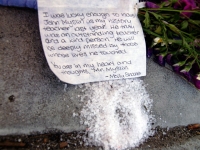 I was lucky enough to have
John Mylan as my history
teacher last year. He truly
was an outstanding teacher
and a kind person. He will
be deeply missed by those
whose lives he touched.
You are in my heart and
thoughts, "Mr. Mylan"